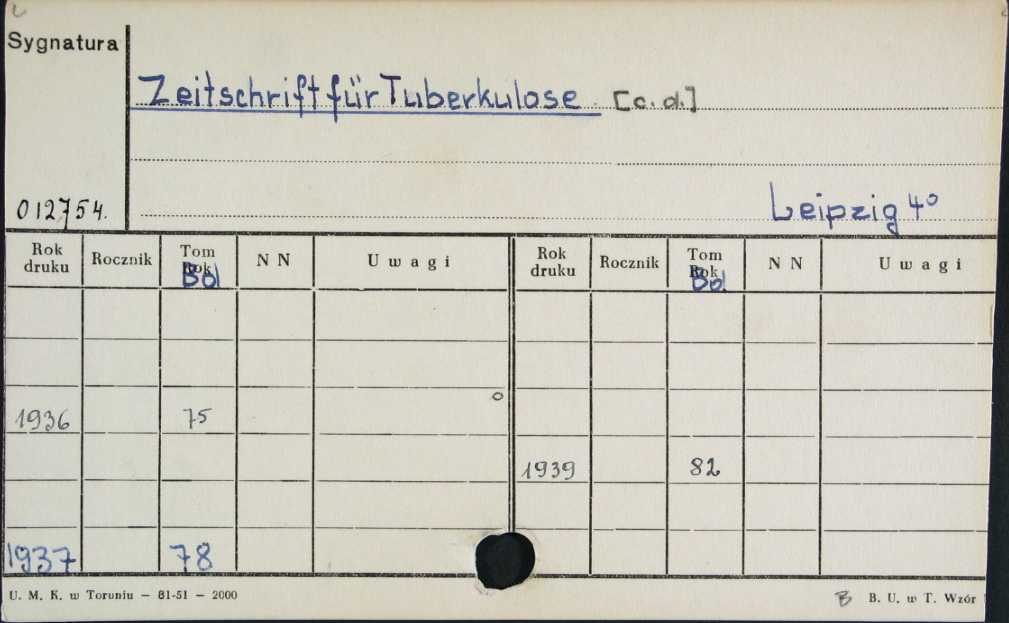 Sygnatura
Zeitschrift für Tuberkulose [c.d.]
012754.
Leipzig 4°
Rok druku Rocznik Tom Rok Bd N N Uwagi Rok druku Rocznik Tom Rok Bd N N Uwagi
1936 75
1939 82
1937 78
U. M. K. w Toruniu — 81-51 — 2000
B B. U. w T. Wzór